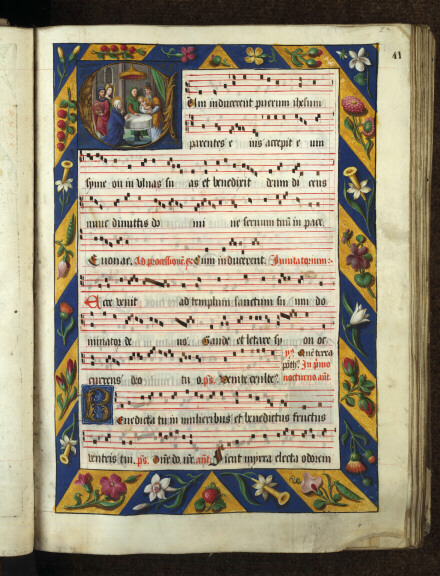 41
um inducerent puerum ihesum
parentes e ius accepit e um
syme on in vlnas su as et benedixit deum di cens
nunc dimittis do mi ne seruum tuū in pace
Euouae. Ad processionē ꝶ Cum inducerent. Inuitatorium:
Ecce venit ad templum sanctum su um do
minator de us. Gaude et letare sy on oc
currens deo tu o. p̄s. Venite exulte.
In pⁱmo
nocturno. añt.
Benedicta tu in mulieribus et benedictus fructus
ventris tui. p̄s. Dn̄e do. nr̄e. añt. Sicut myrra electa odorem